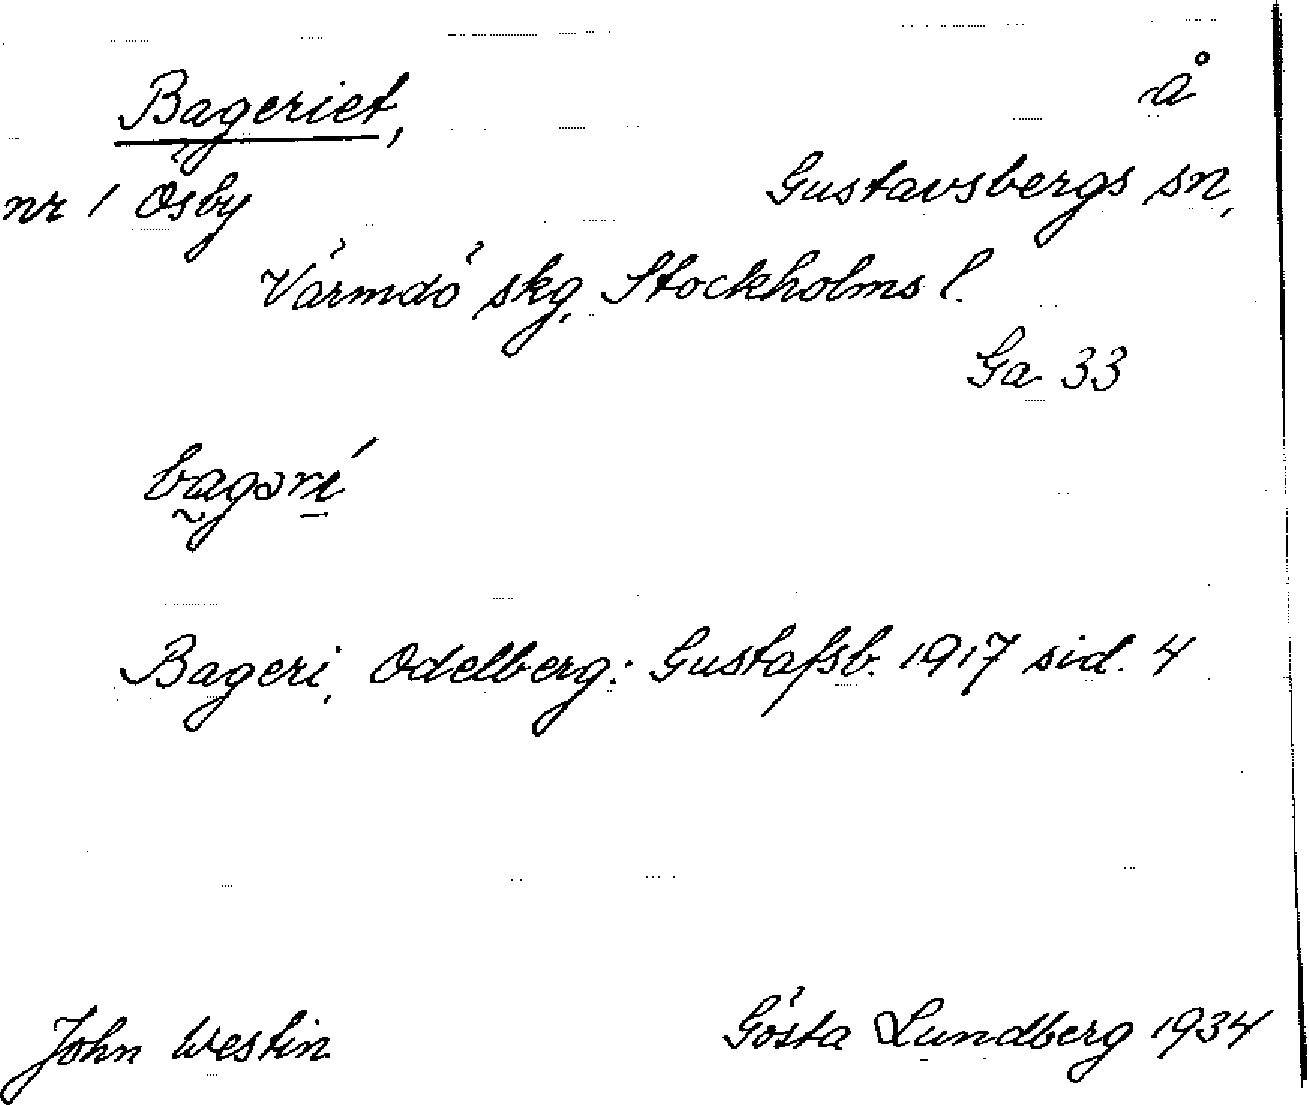 Bageriet, å
nr 1 Ösby Gustavsbergs sn,
Värmdö skg, Stockholms l.
Ga 33
bagəri´
Bageri, Odelberg: Gustafsb. 1917 sid. 4
John Westin Gösta Lundberg 1934